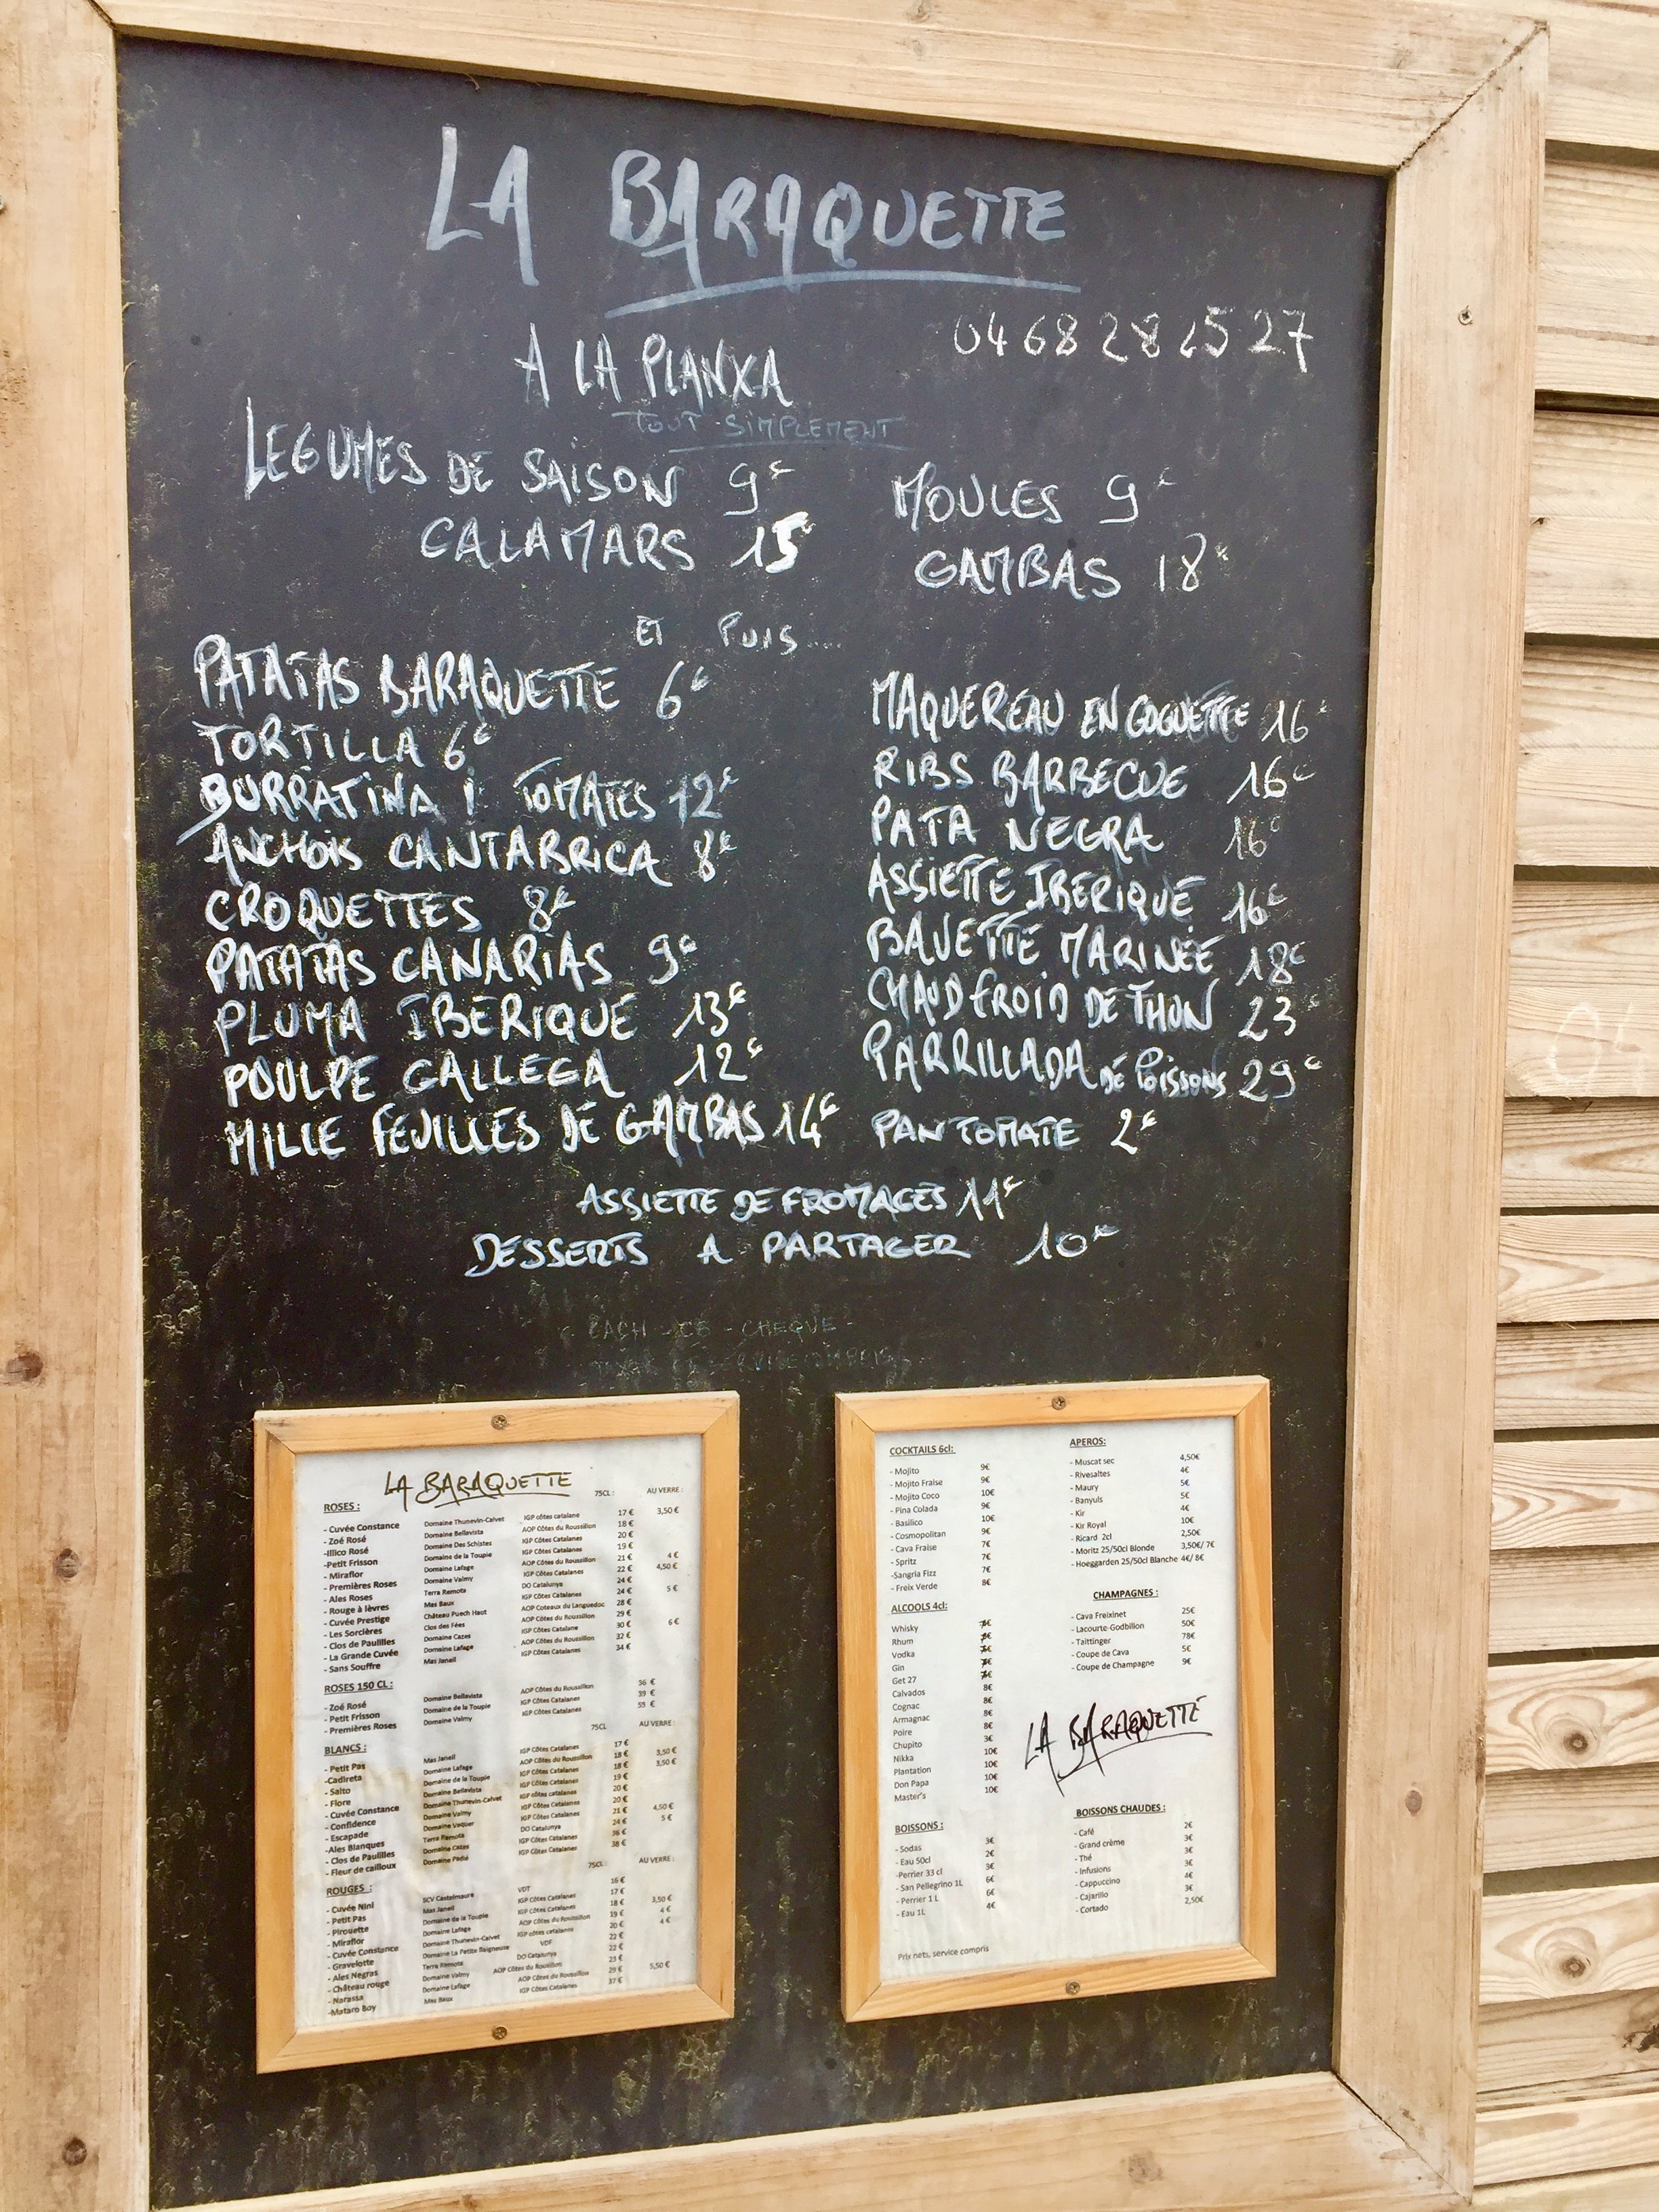 LA BARAQUETTE
04 68 28 65 27
A LA PLANXA
TOUT SIMPLEMENT
LEGUMES DE SAISON 9€ MOULES 9€
CALAMARS 15€ GAMBAS 18€
ET PUIS....
PATATAS BARAQUETTE 6€
TORTILLA 6€
BURRATINA TOMATES 12€
ANCHOIS CANTABRICA 8€
CROQUETTES 8€
PATATAS CANARIAS 9€
PLUMA IBERIQUE 13€
POULPE GALLEGA 12€
MILLE FEUILLES DE GAMBAS 14€
MAQUEREAU EN GOGUETTE 16€
RIBS BARBECUE 16€
PATA NEGRA 16€
ASSIETTE IBERIQUE 16€
BAVETTE MARINÉE 18€
CHAUD FROID DE THON 23€
PARRILLADA DE POISSONS 29€
PAN TOMATE 2€
ASSIETTE DE FROMAGES 11€
DESSERTS A PARTAGER 10€
CASH - CB - CHEQUE -
LA BARAQUETTE
ROSES : 75CL : AU VERRE :
- Cuvée Constance Domaine Thunevin-Calvet IGP côtes catalane 17 € 3,50 €
- Zoé Rosé Domaine Bellavista AOP Côtes du Roussillon 18 €
-Illico Rosé Domaine Des Schistes IGP Côtes Catalanes 20 €
-Petit Frisson Domaine de la Toupie IGP Côtes Catalanes 19 €
- Miraflor Domaine Lafage AOP Côtes du Roussillon 21 € 4 €
- Premières Roses Domaine Valmy IGP Côtes Catalanes 22 € 4,50 €
- Ales Roses Terra Remota DO Catalunya 24 €
- Rouge à lèvres Mas Baux IGP Côtes Catalanes 24 € 5 €
- Cuvée Prestige Château Puech Haut AOP Coteaux du Languedoc 28 €
- Les Sorcières Clos des Fées AOP Côtes du Roussillon 29 €
- Clos de Paulilles Domaine Cazes IGP Côtes Catalane 30 € 6 €
- La Grande Cuvée Domaine Lafage AOP Côtes du Roussillon 32 €
- Sans Souffre Mas Janeil IGP Côtes Catalanes 34 €
ROSES 150 CL :
- Zoé Rosé Domaine Bellavista AOP Côtes du Roussillon 36 €
- Petit Frisson Domaine de la Toupie IGP Côtes Catalanes 39 €
- Premières Roses Domaine Valmy IGP Côtes Catalanes 55 €
BLANCS : 75CL AU VERRE :
- Petit Pas Mas Janeil IGP Côtes Catalanes 17 €
-Cadireta Domaine Lafage AOP Côtes du Roussillon 18 € 3,50 €
- Salto Domaine de la Toupie IGP Côtes Catalanes 18 € 3,50 €
- Flore Domaine Bellavista IGP Côtes Catalanes 19 €
- Cuvée Constance Domaine Thunevin-Calvet IGP côtes catalanes 20 €
- Confidence Domaine Valmy IGP Côtes Catalanes 20 €
- Escapade Domaine Vaquer IGP Côtes Catalanes 21 € 4,50 €
-Ales Blanques Terra Remota DO Catalunya 24 € 5 €
- Clos de Paulilles Domaine Cazes IGP Côtes Catalanes 36 €
- Fleur de cailloux Domaine Padié IGP Côtes Catalanes 38 €
ROUGES : 75CL : AU VERRE :
- Cuvée Nini SCV Castelmaure VDT 16 €
- Petit Pas Mas Janeil IGP Côtes Catalanes 17 €
- Pirouette Domaine de la Toupie IGP Côtes Catalanes 18 € 3,50 €
- Miraflor Domaine Lafage AOP Côtes du Roussillon 19 € 4 €
- Cuvée Constance Domaine Thunevin-Calvet IGP côtes catalanes 20 € 4 €
- Gravelotte Domaine La Petite Baigneuse VDF 22 €
- Ales Negras Terra Remota DO Catalunya 22 €
- Château rouge Domaine Valmy AOP Côtes du Roussillon 23 €
- Narassa Domaine Lafage AOP Côtes du Roussillon 29 € 5,50 €
-Mataro Boy Mas Baux IGP Côtes Catalanes 37 €
COCKTAILS 6cl:
- Mojito 9€
- Mojito Fraise 9€
- Mojito Coco 10€
- Pina Colada 9€
- Basilico 10€
- Cosmopolitan 9€
- Cava Fraise 7€
- Spritz 7€
-Sangria Fizz 7€
- Freix Verde 8€
ALCOOLS 4cl:
Whisky 7€
Rhum 7€
Vodka 7€
Gin 7€
Get 27 7€
Calvados 8€
Cognac 8€
Armagnac 8€
Poire 8€
Chupito 3€
Nikka 10€
Plantation 10€
Don Papa 10€
Master's 10€
BOISSONS :
- Sodas 3€
- Eau 50cl 2€
-Perrier 33 cl 3€
- San Pellegrino 1L 6€
- Perrier 1 L 6€
- Eau 1L 4€
Prix nets, service compris
APEROS:
- Muscat sec 4,50€
- Rivesaltes 4€
- Maury 5€
- Banyuls 5€
- Kir 4€
- Kir Royal 10€
- Ricard 2cl 2,50€
- Moritz 25/50cl Blonde 3,50€/ 7€
- Hoeggarden 25/50cl Blanche 4€/ 8€
CHAMPAGNES :
- Cava Freixinet 25€
- Lacourte-Godbillon 50€
- Taittinger 78€
- Coupe de Cava 5€
- Coupe de Champagne 9€
LA BARAQUETTE
BOISSONS CHAUDES :
- Café 2€
- Grand crème 3€
- Thé 3€
- Infusions 3€
- Cappuccino 4€
- Cajarillo 3€
- Cortado 2,50€